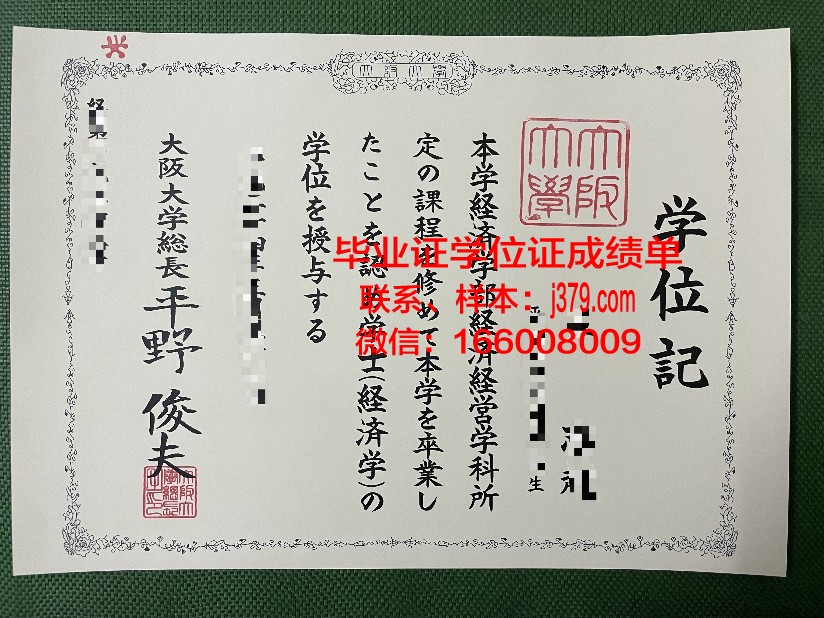 大阪大学
学位記
大阪大學
生
本学経済学部経済経営学科所
定の課程を修めて本学を卒業し
たことを認め学士(経済学)の
学位を授与する
大阪大学総長 平野俊夫
毕业证学位证成绩单
联系、样本：j379.com
微信：166008009